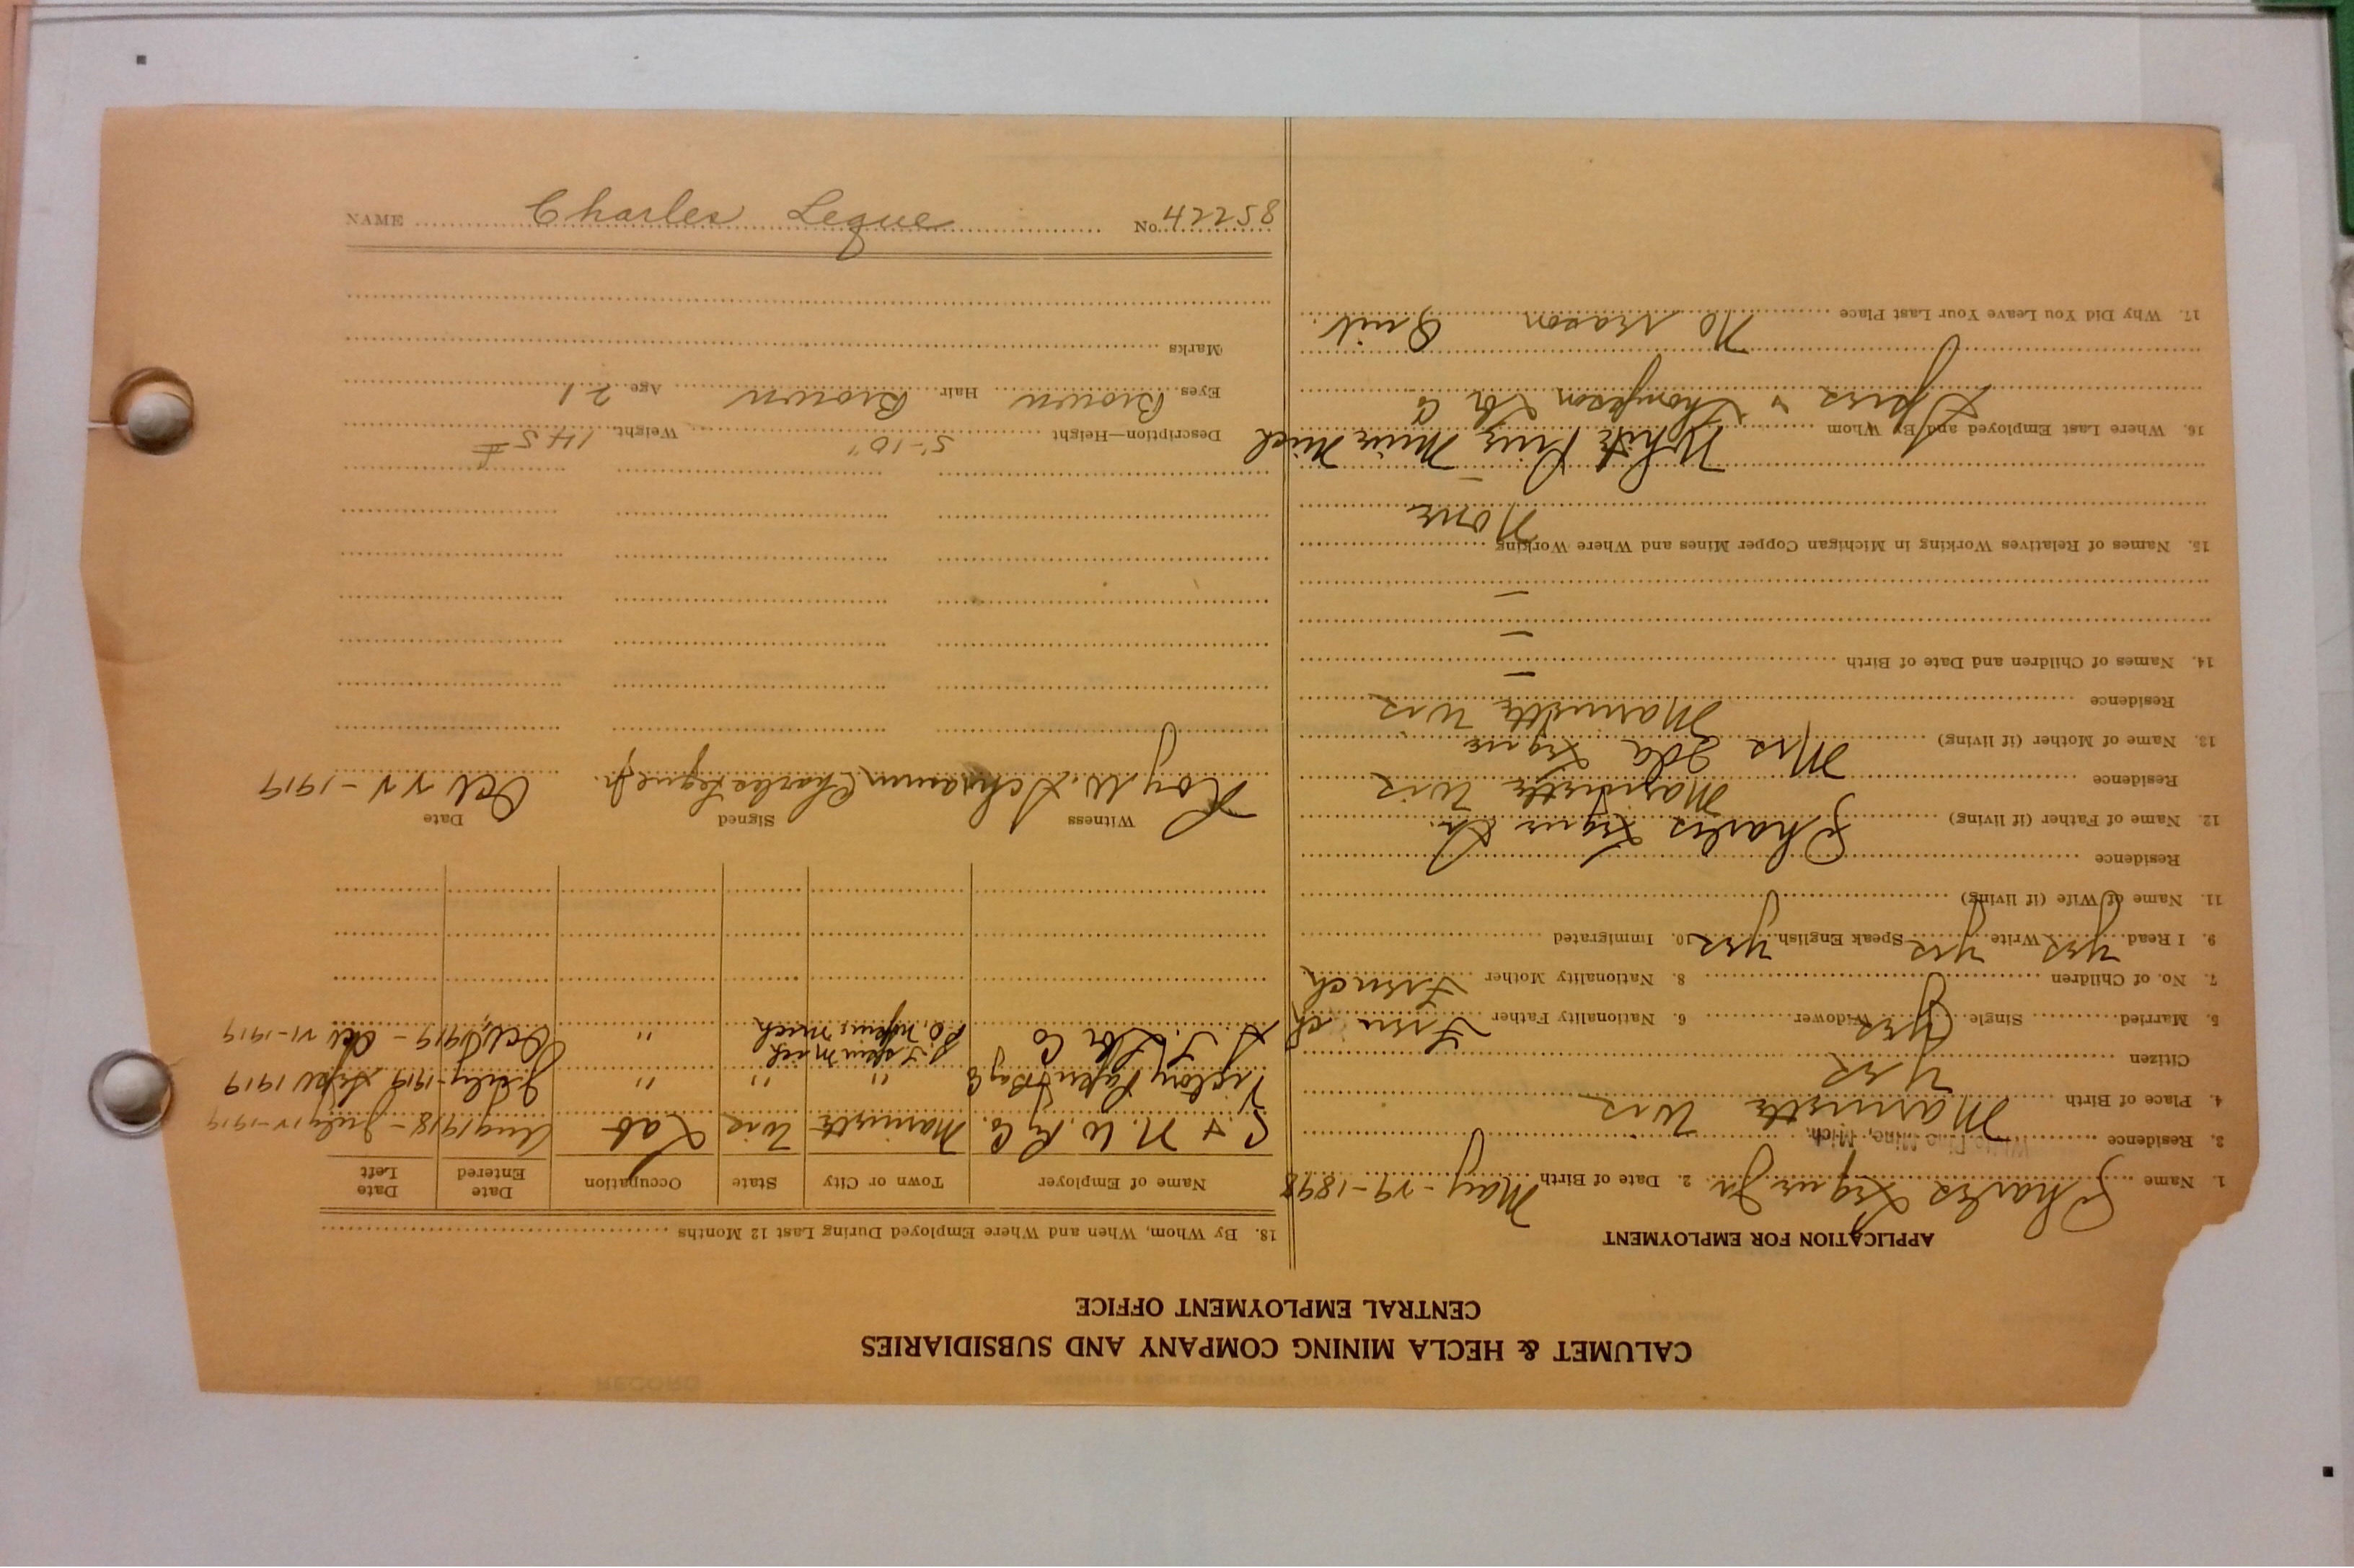 CALUMET & HECLA MINING COMPANY AND SUBSIDIARIES
CENTRAL EMPLOYMENT OFFICE
APPLICATION FOR EMPLOYMENT
1. Name Charles Leque Jr 2. Date of Birth May-29-1898
3. Residence Mine, Mich.
4. Place of Birth Marinette Wis
Citizen Yes
5. Married Single Yes Widower 6. Nationality Father French
7. No. of Children 8. Nationality Mother French
9. I Read Yes Write Yes Speak English Yes 10. Immigrated
11. Name of Wife (if living)
Residence
12. Name of Father (if living) Charles Leque Sr.
Residence Marinette Wis
13. Name of Mother (if living) Mrs Ida Leque
Residence Marinette Wis
14. Names of Children and Date of Birth –
–
–
15. Names of Relatives Working in Michigan Copper Mines and Where Working None
–
16. Where Last Employed and By Whom White Pine Mine Mich
& Thompson Lbr Co
17. Why Did You Leave Your Last Place No reason Quit.
18. By Whom, When and Where Employed During Last 12 Months
Name of Employer Town or City State Occupation Date Entered Date Left
C. & N. W. Ry Co. Marinette Wis Lab Aug 1918 - July 12-1919
" " " July-1919 Sept 1919
Lbr Co Mich " Oct 1919 - Oct 21-1919
Witness Signed Date
Roy W. Schramm Charles Leque Jr. Oct 22-1919
Description—Height 5-10" Weight 145 #
Eyes Brown Hair Brown Age 21
Marks
NAME Charles Leque No. 42258